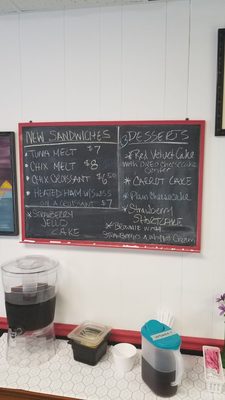 NEW SANDWICHES
TUNA MELT $7
CHIX MELT $8
CHIX CROISSANT $6.50
HEATED HAM W/SWISS
ON A CROISSANT $7
STRAWBERRY
JELLO
CAKE
DESSERTS
Red Velvet Cake
with OREO Cheesecake
Center
CARROT CAKE
Plain Cheesecake
Strawberry
SHORTCAKE
BROWNIE WITH
STRAWBERRIES & Whipped Cream